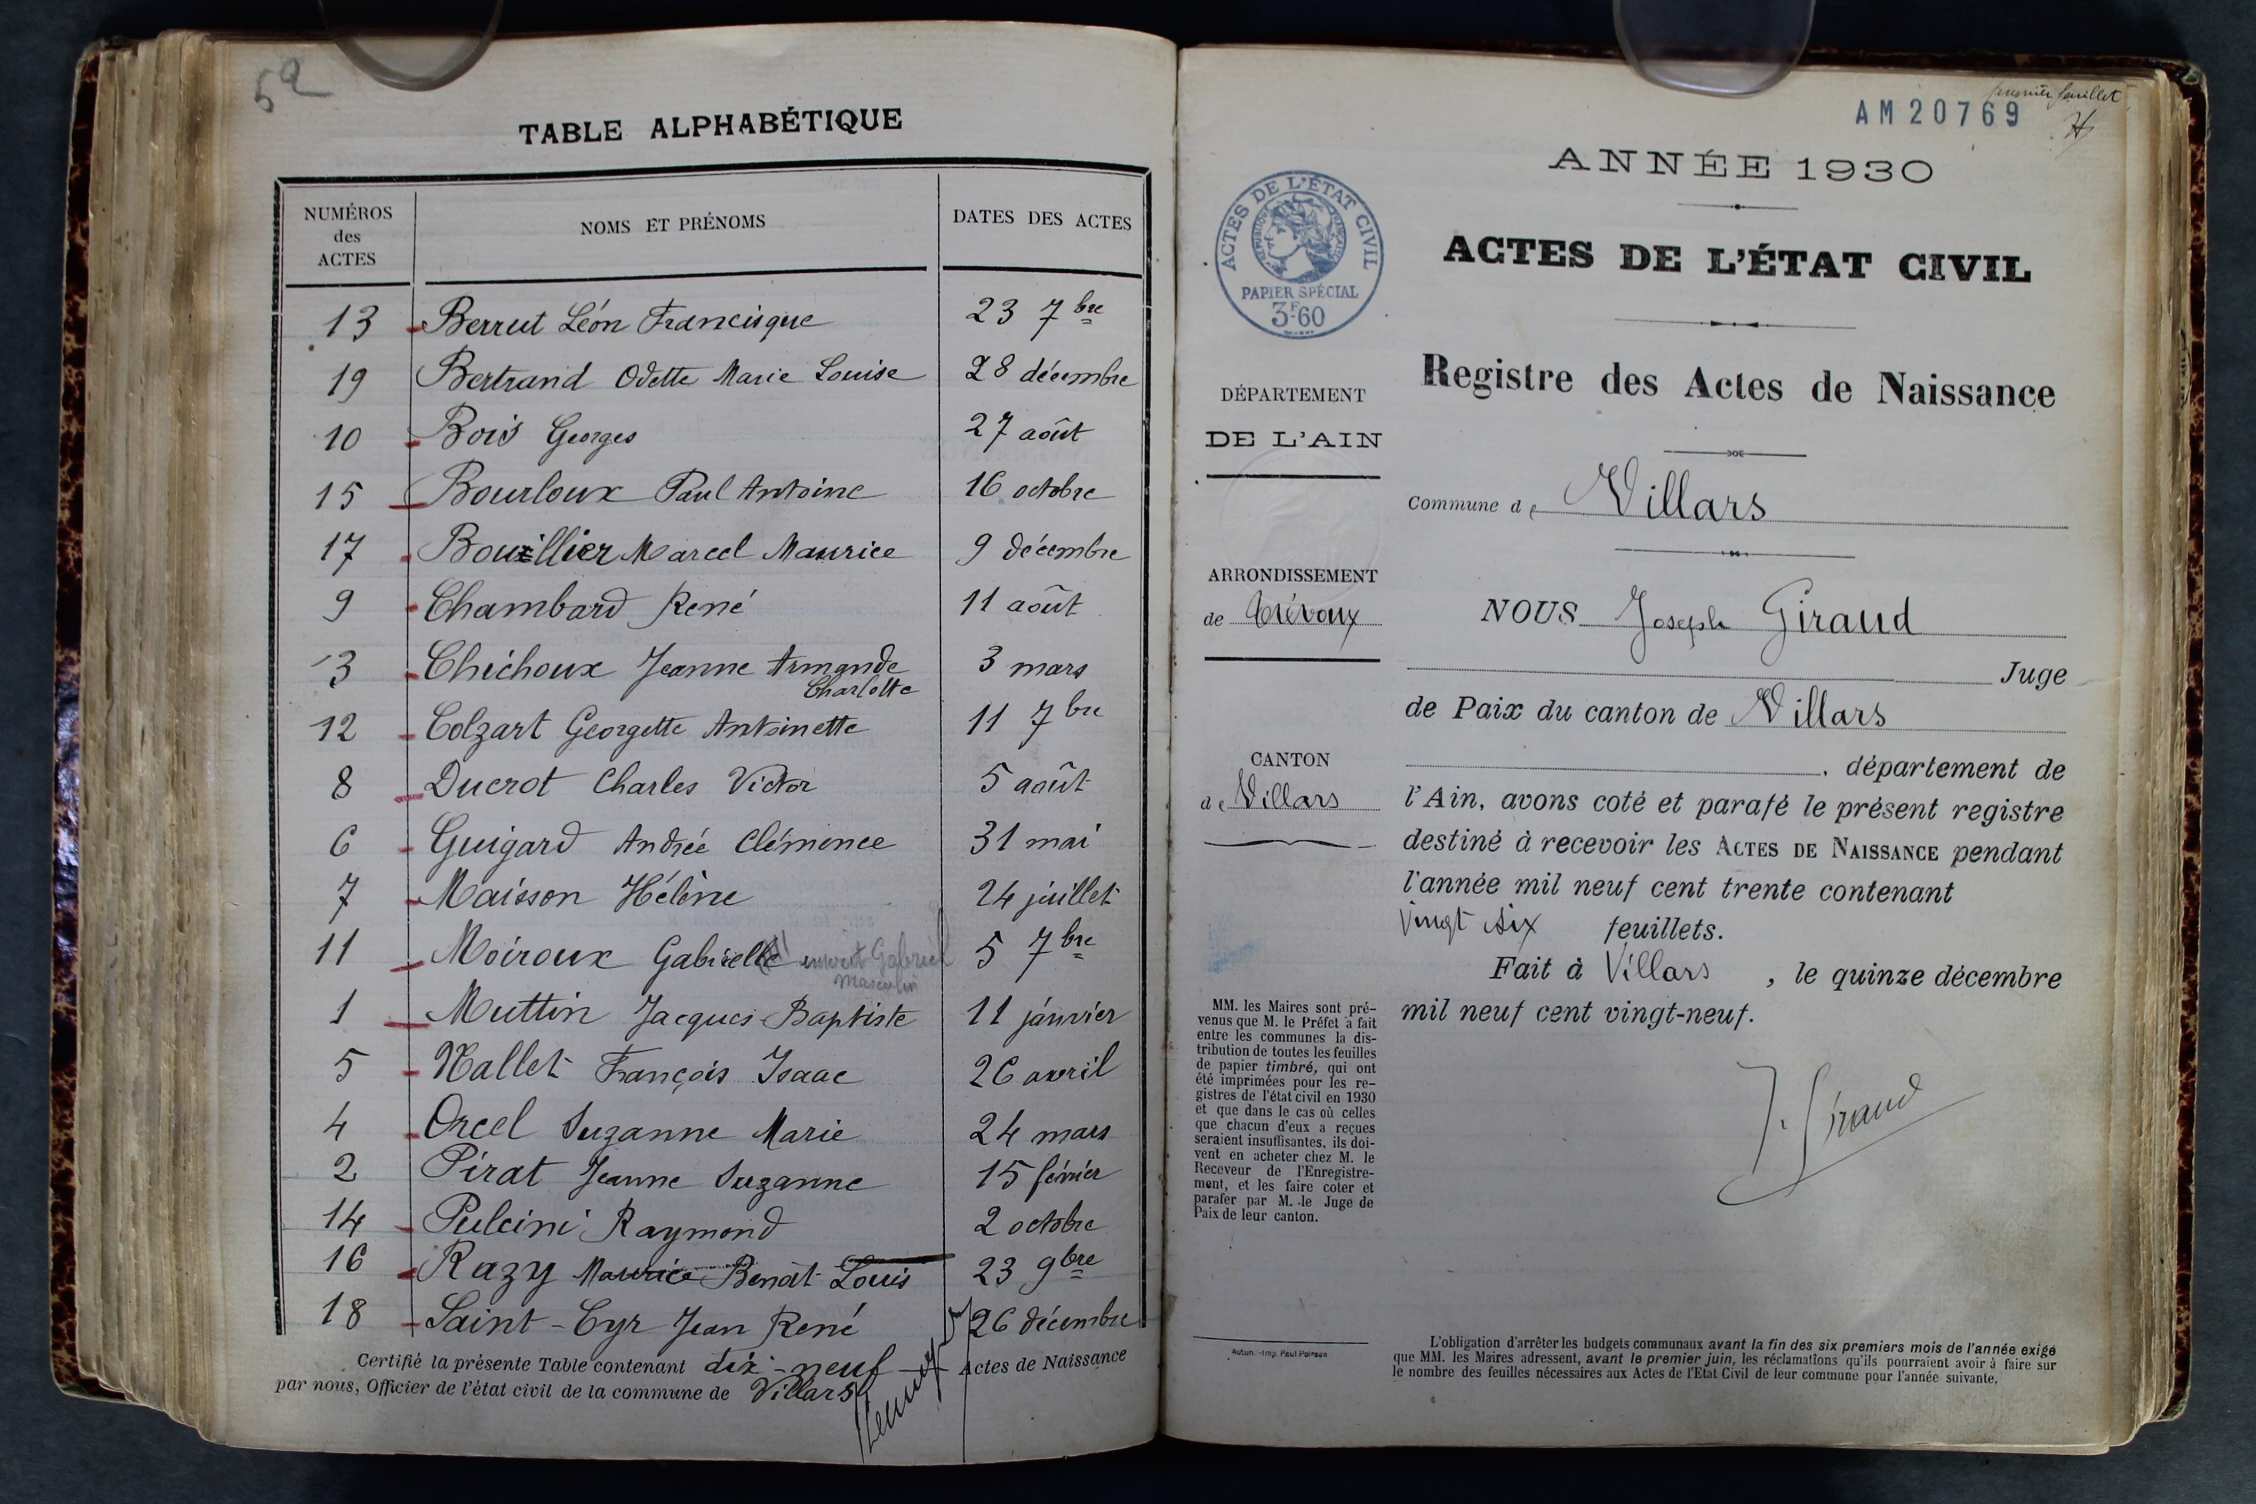 52
TABLE ALPHABÉTIQUE
NUMÉROS des ACTES NOMS ET PRÉNOMS DATES DES ACTES
13 Berrut Léon Francisque 23 7bre
19 Bertrand Odette Marie Louise 28 décembre
10 Bois Georges 27 août
15 Bourloux Paul Antoine 16 octobre
17 Bouillier Marcel Maurice 9 décembre
9 Chambard René 11 août
3 Chichoux Jeanne Armande 3 mars
Charlotte
12 Colzart Georgette Antoinette 11 7bre
8 Ducrot Charles Victor 5 août
6 Guigard Andrée Clémence 31 mai
7 Maisson Hélène 24 juillet
11 Moiroux Gabrielle Gabriel 5 7bre
masculin
1 Muttin Jacques Baptiste 11 janvier
5 Nallet François Isaac 26 avril
4 Orcel Suzanne Marie 24 mars
2 Pirat Jeanne Suzanne 15 février
14 Pulcini Raymond 2 octobre
16 Razy Maurice Benoît Louis 23 9bre
18 Saint-Cyr Jean René 26 décembre
Certifié la présente Table contenant dix-neuf Actes de Naissance
par nous, Officier de l'état civil de la commune de Villars
premier feuillet
AM 20769
ANNÉE 1930
ACTES DE L'ÉTAT CIVIL
RÉPUBLIQUE FRANÇAISE
PAPIER SPÉCIAL
3F60
ACTES DE L'ÉTAT CIVIL
Registre des Actes de Naissance
DÉPARTEMENT
DE L'AIN
Commune de Villars
ARRONDISSEMENT
de Trévoux
CANTON
de Villars
NOUS Joseph Giraud
Juge
de Paix du canton de Villars
, département de
l'Ain, avons coté et parafé le présent registre
destiné à recevoir les ACTES DE NAISSANCE pendant
l'année mil neuf cent trente contenant
vingt six feuillets.
Fait à Villars, le quinze décembre
mil neuf cent vingt-neuf.
J. Giraud
MM. les Maires sont pré-
venus que M. le Préfet a fait
entre les communes la dis-
tribution de toutes les feuilles
de papier timbré, qui ont
été imprimées pour les re-
gistres de l'état civil en 1930
et que dans le cas où celles
que chacun d'eux a reçues
seraient insuffisantes, ils doi-
vent en acheter chez M. le
Receveur de l'Enregistre-
ment, et les faire coter et
parafer par M. le Juge de
Paix de leur canton.
Autun. - Imp. Paul Poirson
L'obligation d'arrêter les budgets communaux avant la fin des six premiers mois de l'année exige
que MM. les Maires adressent, avant le premier juin, les réclamations qu'ils pourraient avoir à faire sur
le nombre des feuilles nécessaires aux Actes de l'Etat Civil de leur commune pour l'année suivante.